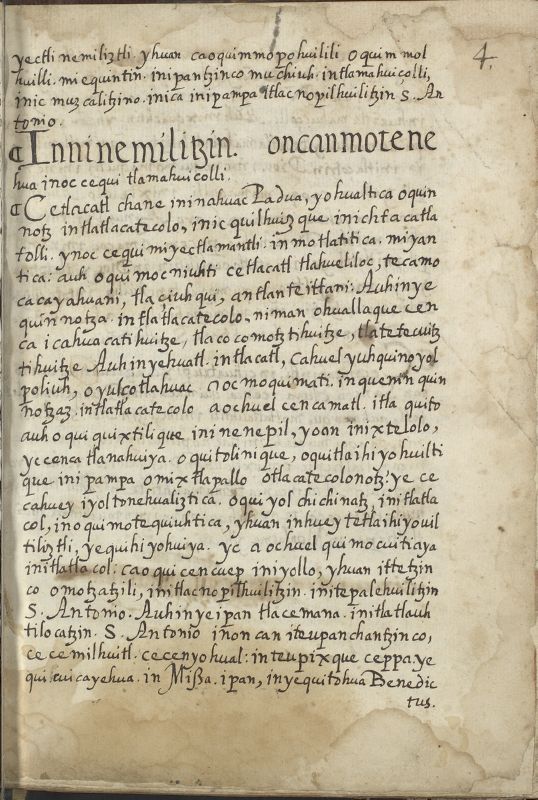 4.
yectli nemiliztli. yhuan ca oquimmopohuilili oquimmol
huilli. miequintin. inipantzinco muchiuh. intlamahuiçolli,
inic muzcalitzino. inica inipampa itlacnopilhuilitzin S. An
tonio.
Inninemilitzin. oncanmotene
hua inoc cequi tlamahuicolli.
Cetlacatl chane ininahuac Padua, yohualtica oquin
notz intlatlacatecolo, inic quilhuiz que inichtacatla
tolli. ynoc cequi miyectlamantli. inmotlatitica. miyan
tica: auh oquimocniuhti cetlacatl tlahueliloc, tecamo
cacayahuani, tlaçiuhqui, antlanteittani: Auhinye
quinnotza intlatlacatecolo. niman ohuallaque cen
ca icahuacatihuitze, tlacocomotztihuitze, tlatetecuitz
tihuitze Auhinyehuatl. intlacatl, cahuel yuhquinoyol
poliuh, oyulcotlahuac aocmoquimati. inquenin quin
notzaz. intlatlacatecolo aochuel cencamatl. itla quito
auh oquiquixtilique ininenepil, yoan inixtelolo,
yc cenca tlanahuiya. oquitolinique, oquitlaihiyohuilti
que inipampa omixtlapallo otlacatecolonotz: ye ce
cahuey iyoltonehualiztica. oquiyolchichinatz, initlatla
col, inoquimotequiuhtica, yhuan inhuey tetlaihiyouil
tiliztli, yequihiyohuiya. yc aochuel quimocuitiaya
initlatlacol: caoquicencuep iniyollo, yhuan ittetzin
co omotzatzili, initlacnopilhuilitzin. initepalehuilitzin
S. Antonio. Auhinyeipan tlacemana. initlatlauh
tilocatzin. S. Antonio inoncan iteupanchantzinco,
cecemilhuitl. cecenyohual: inteupixque ceppa. ye
quicuicayehua. in Missa. ipan, inyequitohua Benedic
tus.